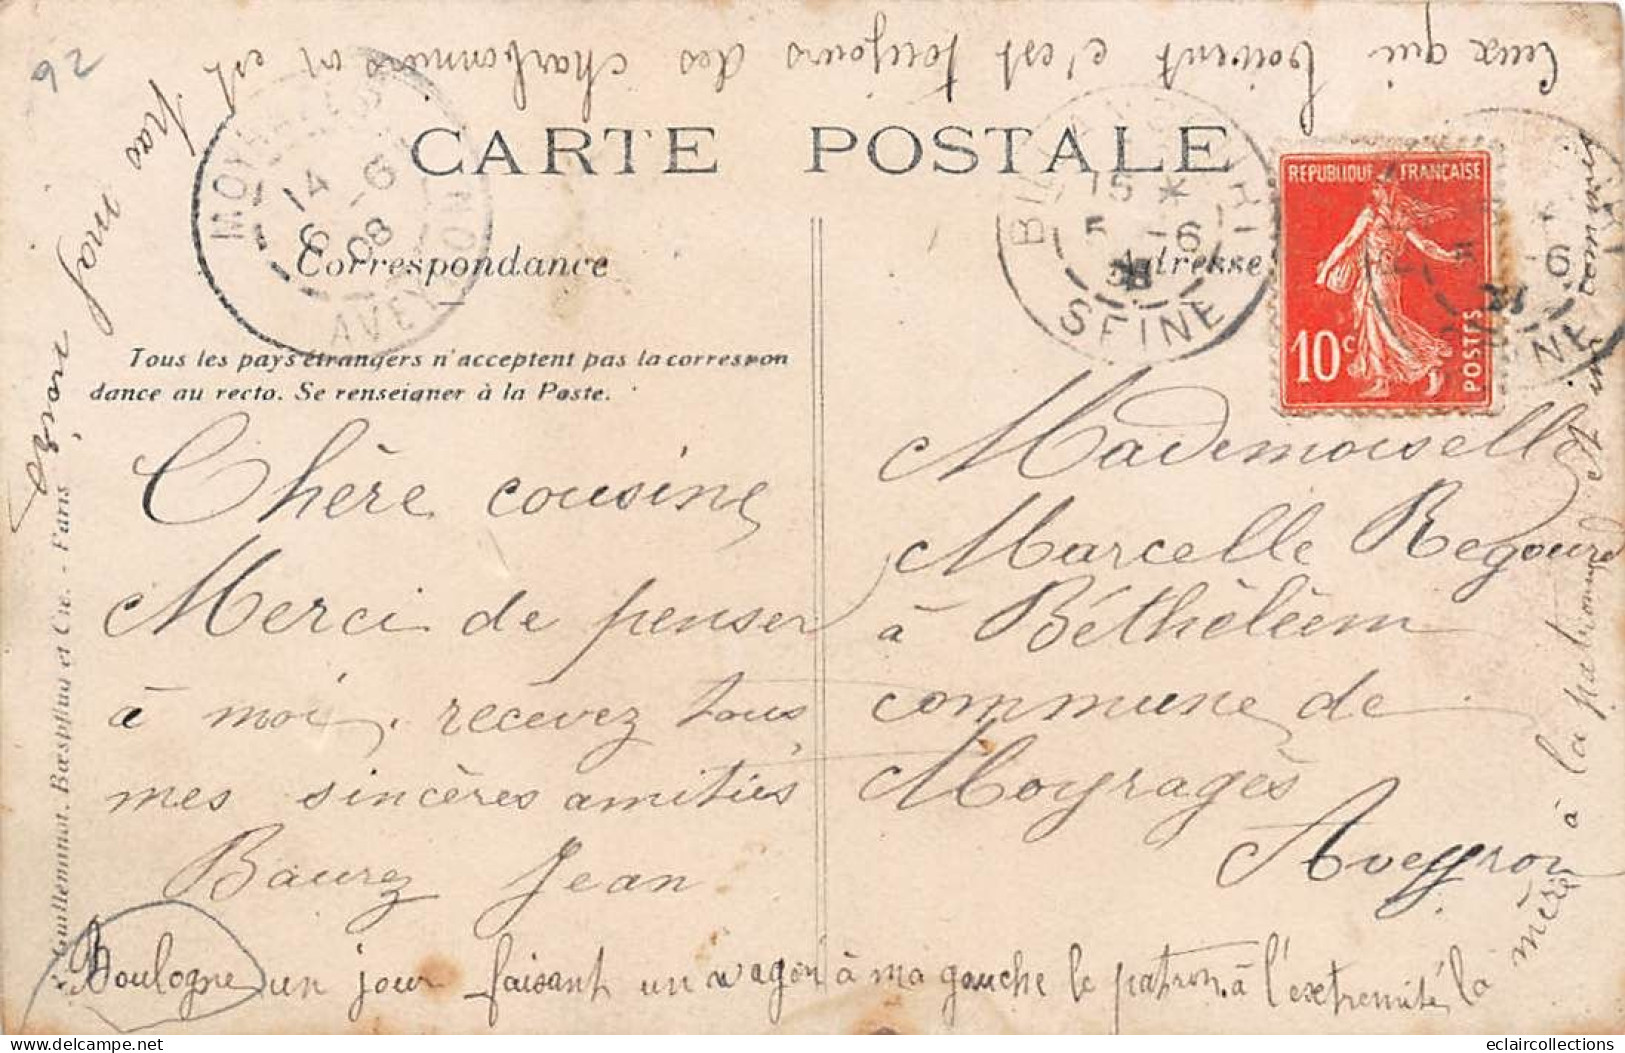 92
Ceux qui boivent c'est toujours des charbonniers on est
pas
CARTE POSTALE
Correspondance
Adresse
Tous les pays étrangers n'acceptent pas la correspon
dance au recto. Se renseigner à la Poste.
REPUBLIQUE FRANÇAISE
10c
POSTES
14
6 -6
08
AVEYRON
15 *
5 -6
SEINE
Chère cousine
Merci de penser
à moi, recevez tous
mes sincères amitiés
Baurez Jean
Mademoiselle
Marcelle Regourd
à Béthéléem
commune de
Moyragès
Aveyron
Boulogne un jour faisant un wagon à ma gauche le patron à l'extremité la
mère à la patronne
Guillemmot, Bœspflug et Cie. - Paris
eclaircollections